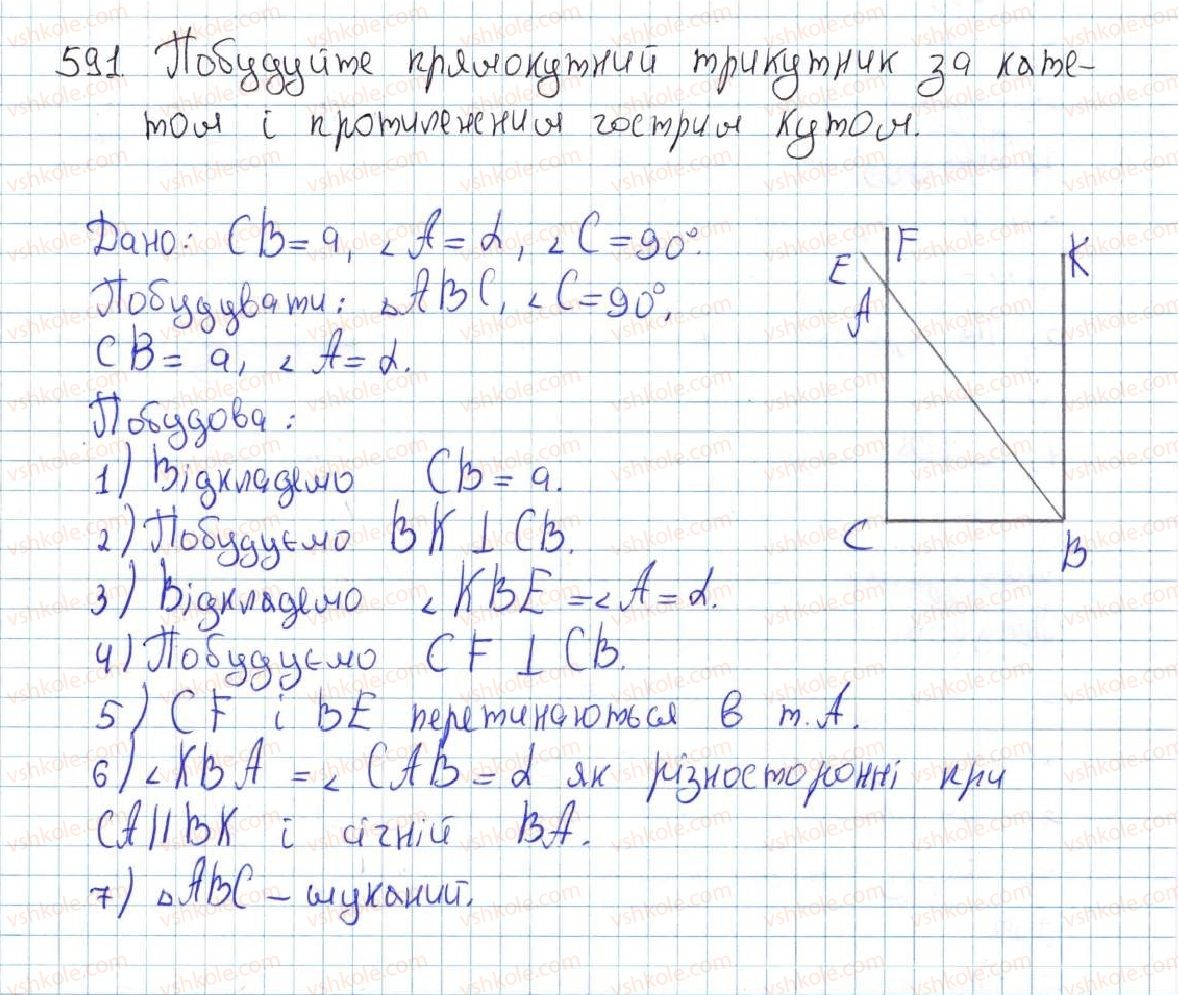 591 Побудуйте прямокутний трикутник за кате-
том і протилежним гострим кутом.
Дано: CB = a, ∠A = α, ∠C = 90°.
Побудувати: △ABC, ∠C = 90°,
CB = a, ∠A = α.
Побудова:
1) Відкладемо CB = a.
2) Побудуємо BK ⊥ CB.
3) Відкладемо ∠KBE = ∠A = α.
4) Побудуємо CF ⊥ CB.
5) CF і BE перетинаються в т. A.
6) ∠KBA = ∠CAB = α як різносторонні при
CA || BK і січній BA.
7) △ABC – шуканий.
E
F
K
A
C
B
vshkole.com